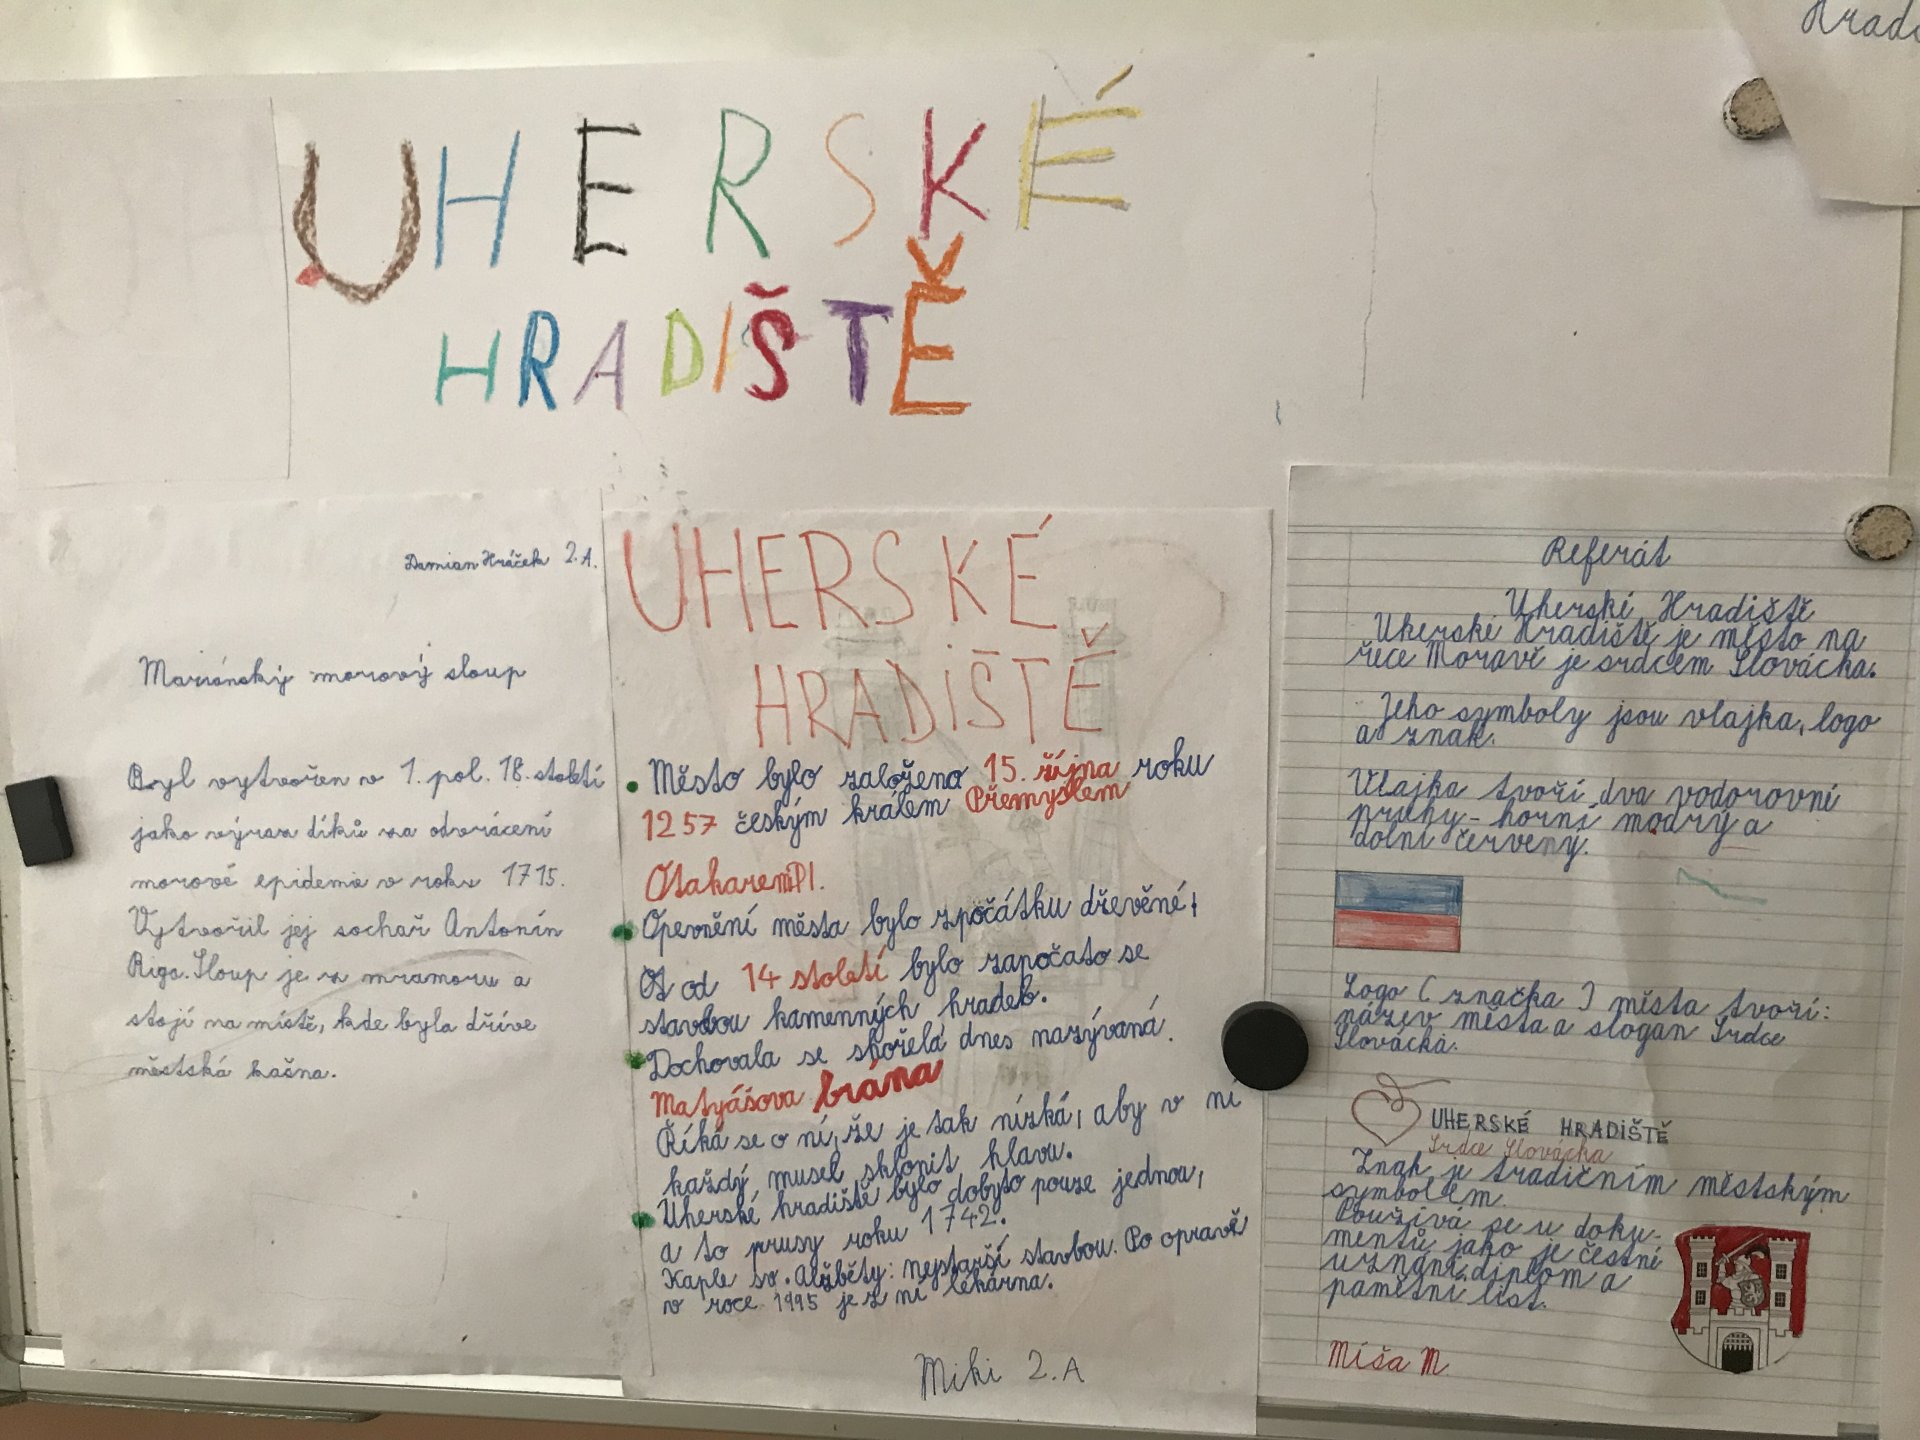 Hradi
UHERSKÉ
HRADIŠTĚ
Damian Hráček 2.A.
Mariánský morový sloup
Byl vytvořen v 1. pol. 18. století
jako výraz díků za odvrácení
morové epidemie v roku 1715.
Vytvořil jej sochař Antonín
Riga. Sloup je z mramoru a
stojí na místě, kde byla dříve
městská kašna.
UHERSKÉ
HRADIŠTĚ
Město bylo založeno 15. října roku
1257 českým králem Přemyslem
Otakarem
Opevnění města bylo zpočátku dřevěné,
od 14 století bylo započato se
stavbou kamenných hradeb.
Dochovala se dnes nazývaná.
Matyášova brána
Říká se o ní, že je tak nízká, aby v ní
každý musel sklonit hlavu.
Uherské hradiště bylo dobyto pouze jednou,
a to prusy roku 1742.
Kaple sv. Alžběty: nejstarší stavbou. Po opravě
v roce 1995 je z ní lékárna.
Miki 2.A
Referát
Uherské Hradiště
Uherské Hradiště je město na
řece Moravě je srdcem Slovácka.
Jeho symboly jsou vlajka, logo
a znak.
Vlajka tvoří dva vodorovní
pruhy - horní modrý a
dolní červený.
Logo (značka) města tvoří:
název města a slogan Srdce
Slovácká.
UHERSKÉ HRADIŠTĚ
Srdce Slovácka
Znak je tradičním městským
symbolem.
Používá se u doku-
mentů jako je čestné
uznání, diplom a
pamětní list.
Míša M.